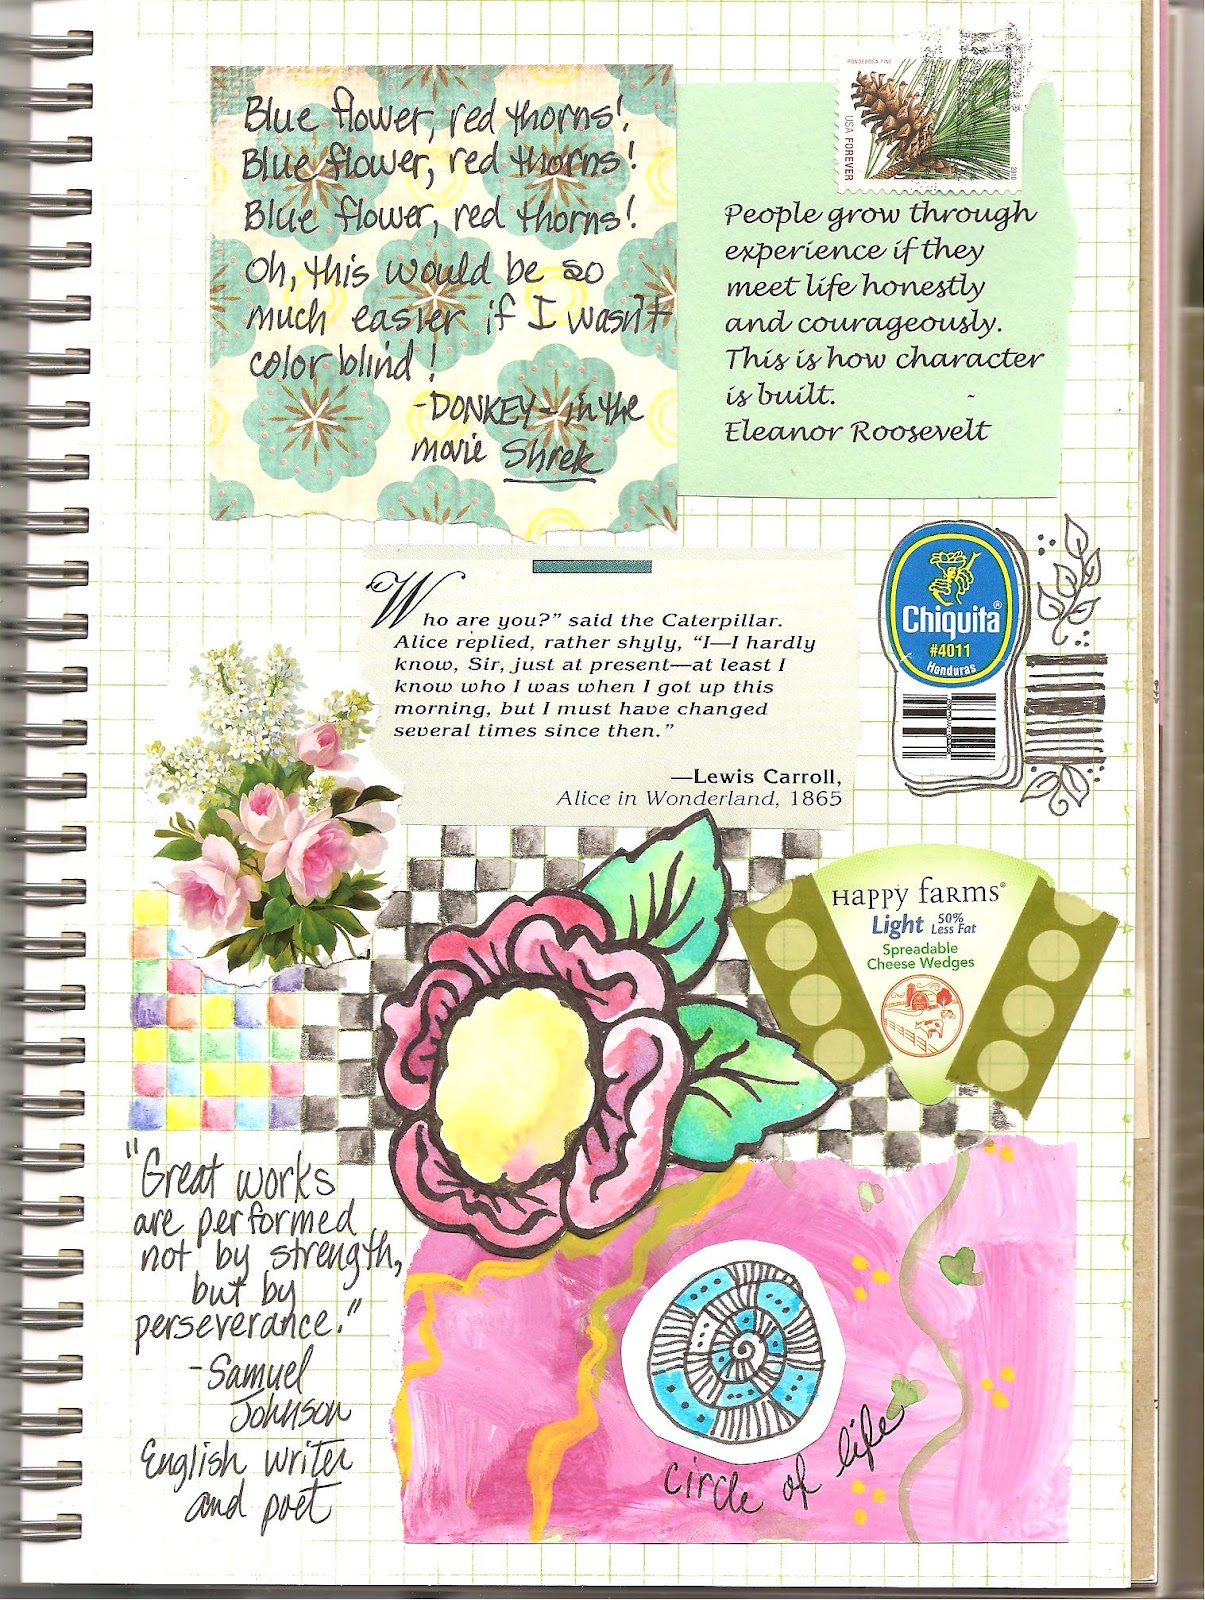 Blue flower, red thorns!
Blue flower, red thorns!
Blue flower, red thorns!
Oh, this would be so
much easier if I wasn't
color blind!
-DONKEY- in the
movie Shrek
PONDEROSA PINE
USA FOREVER
2010
People grow through
experience if they
meet life honestly
and courageously.
This is how character
is built. -
Eleanor Roosevelt
"Who are you?" said the Caterpillar.
Alice replied, rather shyly, "I—I hardly
know, Sir, just at present—at least I
know who I was when I got up this
morning, but I must have changed
several times since then."
—Lewis Carroll,
Alice in Wonderland, 1865
Chiquita®
#4011
Honduras
HAPPY FARMS®
Light 50%
Less Fat
Spreadable
Cheese Wedges
"Great works
are performed
not by strength,
but by
perseverance."
-Samuel
Johnson
English writer
and poet
circle of life